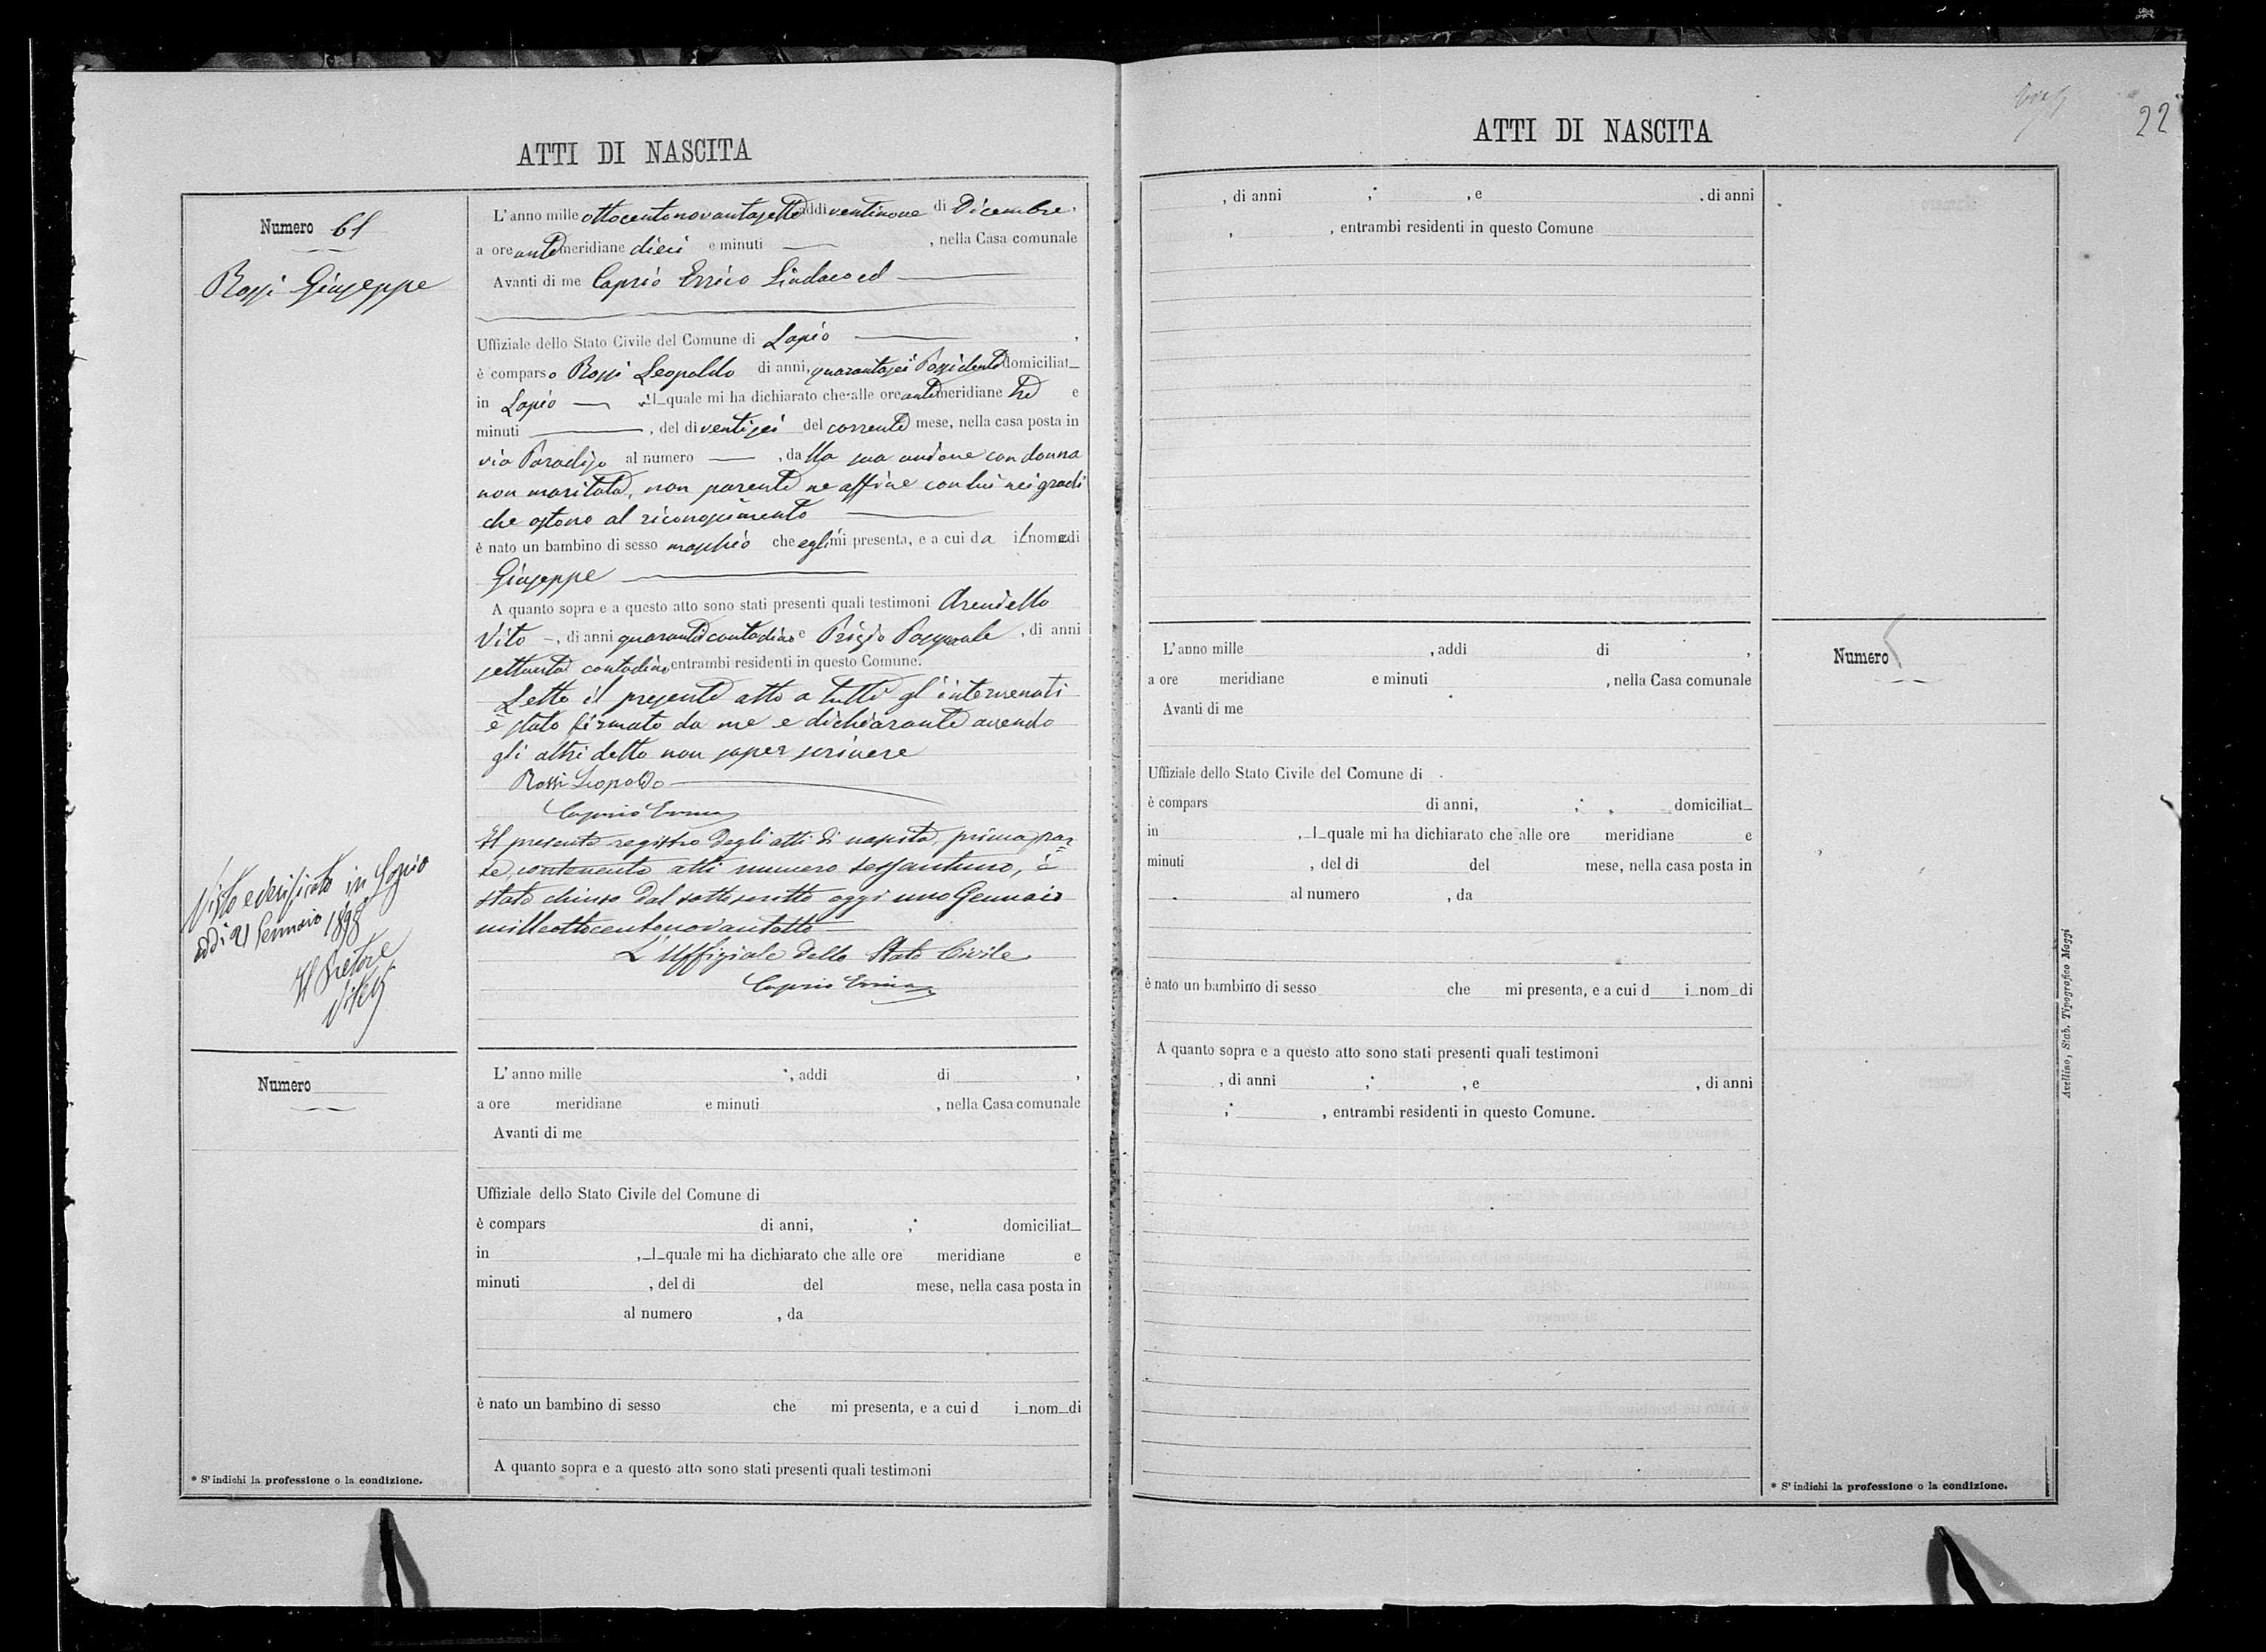 ATTI DI NASCITA
Numero 61
Rossi Giuseppe
L'anno mille ottocentonovantasette addi ventinove di Dicembre,
a ore antemeridiane dieci e minuti , nella Casa comunale
Avanti di me Caprio Errico Sindaco ed
Uffiziale dello Stato Civile del Comune di Lapio ,
è comparso Rossi Leopoldo di anni, quarantasei Possidente domiciliat_
in Lapio il quale mi ha dichiarato che alle ore antemeridiane tre e
minuti , del di ventisei del corrente mese, nella casa posta in
via Paradiso al numero , dalla sua unione con donna
non maritata, non parente ne affine con lui nei gradi
che ostono al riconoscimento
è nato un bambino di sesso maschio che egli mi presenta, e a cui da il nome di
Giuseppe
A quanto sopra e a questo atto sono stati presenti quali testimoni
Vito , di anni quaranta contadino e Pasquale , di anni
settanta contadino entrambi residenti in questo Comune.
Letto il presente atto a tutti gl'intervenuti
è stato firmato da me e dichiarante avendo
gli altri detto non saper scrivere
Rossi Leopoldo
Caprio Errico
Il presente registro degli atti di nascita, prima par=
te, contenente atti numero sessantuno, è
stato chiuso dal sottoscritto oggi uno Gennaio
milleottocentonovantotto
L'Uffiziale dello Stato Civile
Caprio Errico
Visto e verificato in Lapio
addi 21 Gennaio 1898
Il Pretore
Numero
L'anno mille , addi di ,
a ore meridiane e minuti , nella Casa comunale
Avanti di me
Uffiziale dello Stato Civile del Comune di
è compars di anni, ;* domiciliat_
in , _l_quale mi ha dichiarato che alle ore meridiane e
minuti , del di del mese, nella casa posta in
al numero , da
è nato un bambino di sesso che mi presenta, e a cui d i_nom_di
A quanto sopra e a questo atto sono stati presenti quali testimoni
* S'indichi la professione o la condizione.
22
ATTI DI NASCITA
, di anni ;* , e , di anni
, , entrambi residenti in questo Comune
Numero
L'anno mille , addi di ,
a ore meridiane e minuti , nella Casa comunale
Avanti di me
Uffiziale dello Stato Civile del Comune di
è compars di anni, ;* domiciliat_
in , _l_quale mi ha dichiarato che alle ore meridiane e
minuti , del di del mese, nella casa posta in
al numero , da
è nato un bambino di sesso che mi presenta, e a cui d i_nom_di
A quanto sopra e a questo atto sono stati presenti quali testimoni
, di anni ;* , e , di anni
;* , entrambi residenti in questo Comune.
* S'indichi la professione o la condizione.
Avellino, Stab. Tipografico Maggi